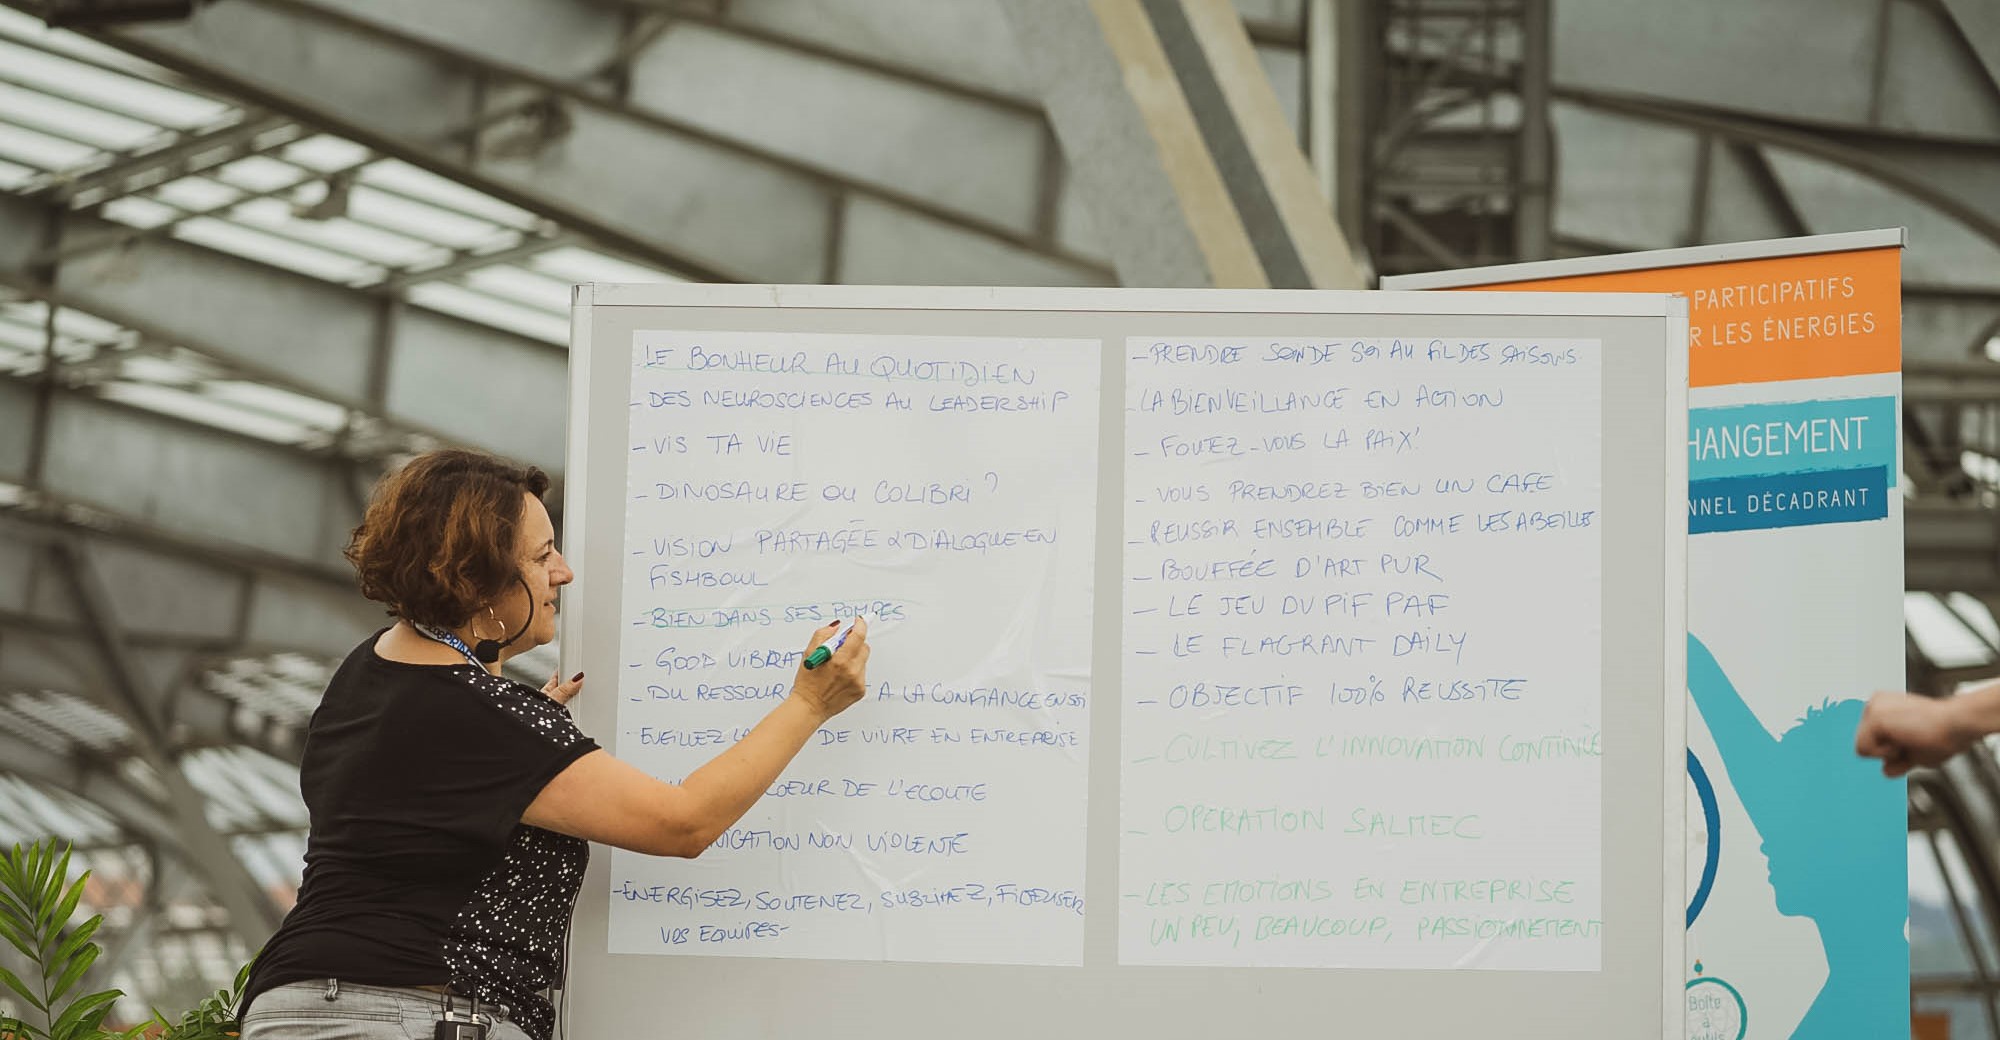 LE BONHEUR AU QUOTIDIEN
- DES NEUROSCIENCES AU LEADERSHIP
- VIS TA VIE
- DINOSAURE OU COLIBRI ?
- VISION PARTAGÉE & DIALOGUE EN
FISHBOWL
- BIEN DANS SES POMPES
- GOOD VIBRAT
- DU RESSOUR A LA CONFIANCE EN SOI
EVEILLEZ LA DE VIVRE EN ENTREPRISE
COEUR DE L'ECOUTE
NICATION NON VIOLENTE
- ENERGISEZ, SOUTENEZ, SUBLIMEZ, FIDELISER
VOS EQUIPES-
- PRENDRE SOIN DE SOI AU FIL DES SAISONS
- LA BIENVEILLANCE EN ACTION
- FOUTEZ-VOUS LA PAIX!
- VOUS PRENDREZ BIEN UN CAFE
- REUSSIR ENSEMBLE COMME LES ABEILLES
- BOUFFÉE D'ART PUR
- LE JEU DU PIF PAF
- LE FLAGRANT DAILY
- OBJECTIF 100% REUSSITE
- CULTIVEZ L'INNOVATION CONTINUE
- OPERATION SALMEC
- LES EMOTIONS EN ENTREPRISE
UN PEU, BEAUCOUP, PASSIONNEMENT
PARTICIPATIFS
R LES ÉNERGIES
HANGEMENT
NNEL DÉCADRANT
Boîte
à
outils